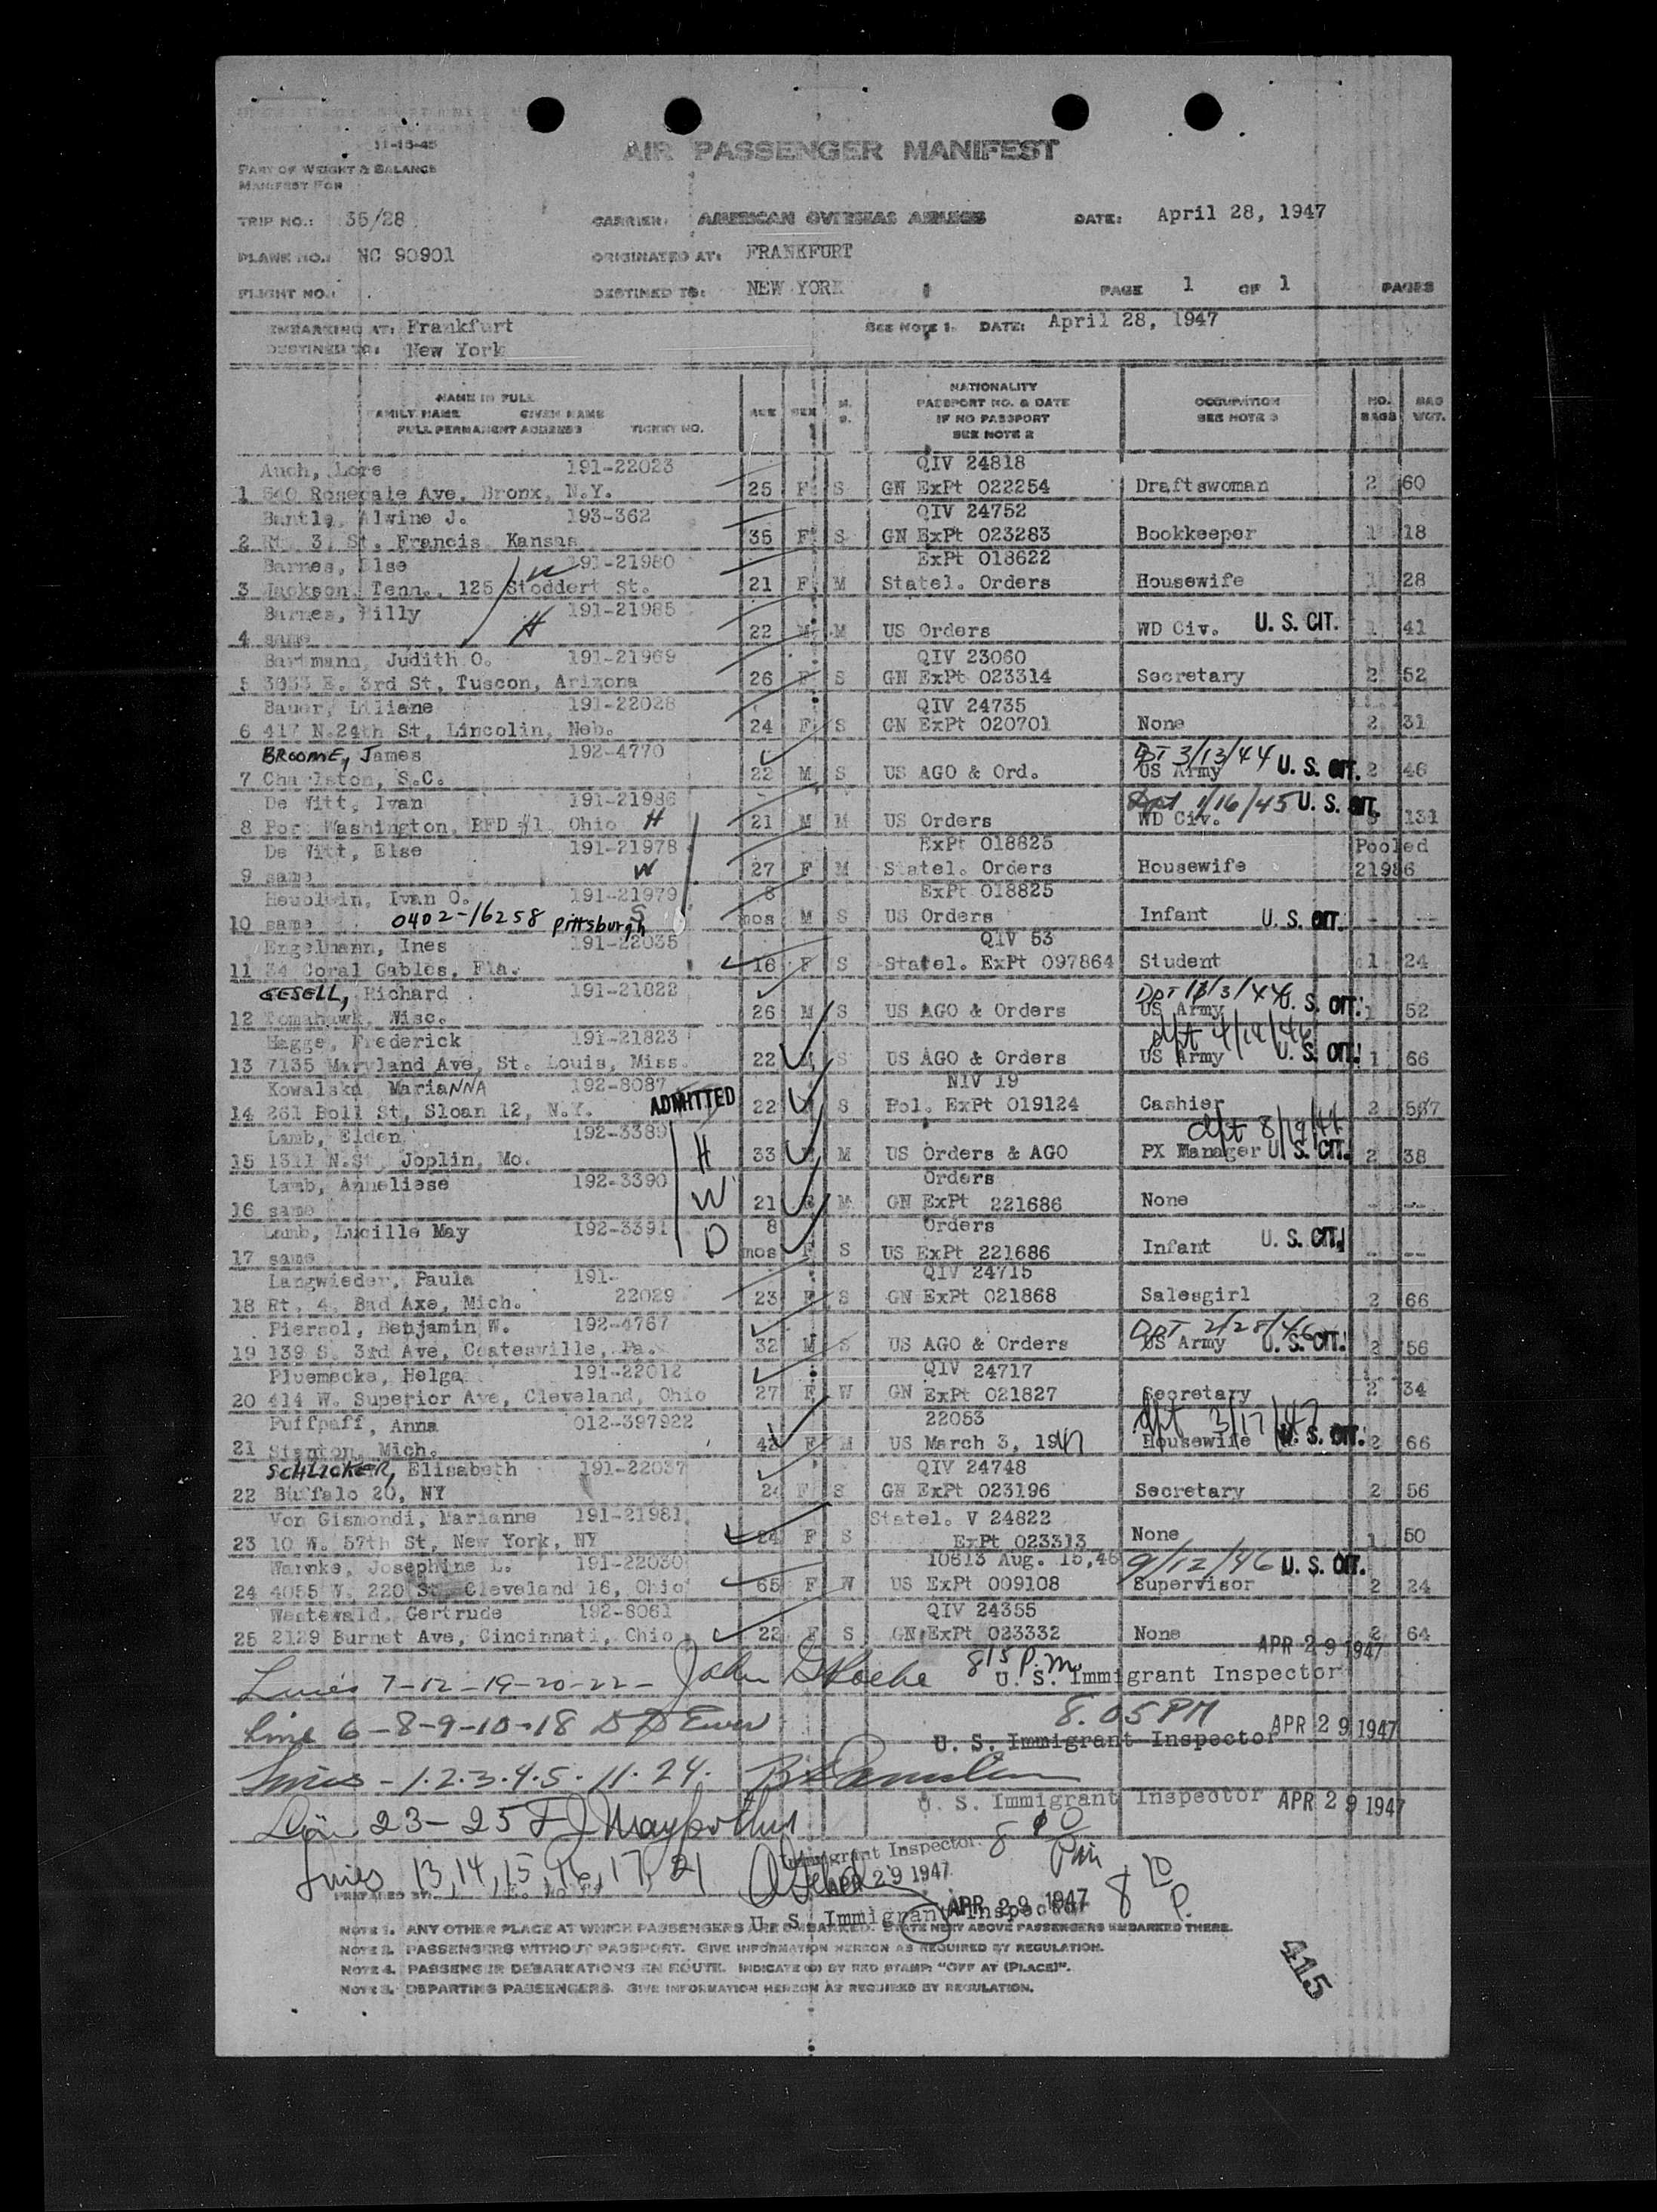 11-15-45
AIR PASSENGER MANIFEST
PART OF WEIGHT & BALANCE
MANIFEST FOR
TRIP NO.: 35/28 CARRIER: AMERICAN OVERSEAS AIRLINES DATE: April 28, 1947
PLANE NO.: NC 90901 ORIGINATED AT: FRANKFURT
FLIGHT NO.: DESTINED TO: NEW YORK PAGE 1 OF 1 PAGES
EMBARKING AT: Frankfurt SEE NOTE 1. DATE: April 28, 1947
DESTINED TO: New York
NAME IN FULL
FAMILY NAME GIVEN NAME
FULL PERMANENT ADDRESS TICKET NO.
AGE SEX M. S.
NATIONALITY
PASSPORT NO. & DATE
IF NO PASSPORT
SEE NOTE 2
OCCUPATION
SEE NOTE 3
NO. BAGS
BAG WGT.
Auch, Lore 191-22023 QIV 24818
1 Rosedale Ave, Bronx, N.Y. 25 F S GN ExPt 022254 Draftswoman 2 60
Bantle, Alwine J. 193-362 QIV 24752
2 Rt. 3, St. Francis Kansas 35 F S GN ExPt 023283 Bookkeeper 1 18
Barnes, Else W 191-21980 ExPt 018622
3 Jackson, Tenn., 125 Stoddert St. 21 F M Statel. Orders Housewife 1 28
Barnes, Billy H 191-21985
4 same 22 M M US Orders WD Civ. U. S. CIT. 1 41
Bartmann, Judith O. 191-21969 QIV 23060
5 E. 3rd St, Tuscon, Arizona 26 F S GN ExPt 023314 Secretary 2 52
Bauer, Liliane 191-22028 QIV 24735
6 417 N.24th St, Lincolin, Neb. 24 F S GN ExPt 020701 None 2 31
BROOME, James 192-4770 DPT 3/13/44
7 Charleston, S.C. 22 M S US AGO & Ord. US Army U. S. CIT. 2 46
De Witt, Ivan 191-21986 Dpt 1/16/45 U. S. CIT.
8 Port Washington, RFD #1, Ohio H 21 M M US Orders WD Civ. 131
De Witt, Else 191-21978 ExPt 018825 Pooled
9 same W 27 F M Statel. Orders Housewife 21986
Heublein, Ivan O. 191-21979 8 ExPt 018825
10 same 0402-16258 Pittsburgh S mos M S US Orders Infant U. S. CIT. - --
Engelmann, Ines 191-22035 QIV 53
11 34 Coral Gables, Fla. 16 F S Statel. ExPt 097864 Student 1 24
GESELL, Richard 191-21822
12 Tomahawk, Wisc. 26 M S US AGO & Orders US Army U. S. CIT. 1 52
Hagge, Frederick 191-21823 dpt 4/19/46
13 7135 Maryland Ave, St. Louis, Miss. 22 S US AGO & Orders US Army U. S. CIT. 1 66
Kowalska MariaNNA 192-8087 NIV 19
14 261 Boll St, Sloan 12, N.Y. ADMITTED 22 S Pol. ExPt 019124 Cashier 2
Lamb, Elden 192-3389 dpt 8/19/44
15 1311 N.St, Joplin, Mo. H 33 M US Orders & AGO PX Manager U. S. CIT. 2 38
Lamb, Anneliese 192-3390 Orders
16 same W 21 M GN ExPt 221686 None - --
Lamb, Lucille May 192-3391 8 Orders
17 same D mos F S US ExPt 221686 Infant U. S. CIT. -- --
Langwieder, Paula 191- QIV 24715
18 Rt. 4, Bad Axe, Mich. 22029 23 F S GN ExPt 021868 Salesgirl 2 66
Piersol, Benjamin W. 192-4767 DPT 2/28/46
19 139 S. 3rd Ave, Coatesville, Pa. 32 M S US AGO & Orders US Army U. S. CIT. 2 56
Pluemecke, Helga 191-22012 QIV 24717
20 414 W. Superior Ave, Cleveland, Ohio 27 F W GN ExPt 021827 Secretary 2 34
Puffpaff, Anna 012-397922 22053 dpt 3/17/47
21 Stanton, Mich. 42 F M US March 3, 1947 Housewife U. S. CIT. 2 66
SCHLICKER, Elisabeth 191-22037 QIV 24748
22 Buffalo 20, NY 24 F S GN ExPt 023196 Secretary 2 56
Von Gismondi, Marianne 191-21981 Statel. V 24822
23 10 W. 57th St, New York, NY 24 F S ExPt 023313 None 1 50
Warnke, Josephine L. 191-22030 10613 Aug. 15,46 9/12/46 U. S. CIT.
24 4055 W. 220 St. Cleveland 16, Ohio 65 F W US ExPt 009108 Supervisor 2 24
Westewald, Gertrude 192-8061 QIV 24355
25 2129 Burnet Ave, Cincinnati, Ohio 22 F S GN ExPt 023332 None 2 64
APR 29 1947
Lines 7-12-19-20-22- John 8 15 P.M. U. S. Immigrant Inspector
Line 6-8-9-10-18 8.05 PM APR 29 1947
U. S. Immigrant Inspector
Lines - 1.2.3.4.5. 11. 24.
U. S. Immigrant Inspector APR 29 1947
Line 23-25
Immigrant Inspector 8 Pm
Lines 13,14,15,16,17,21 APR 29 1947 8 10 P.
PREPARED BY:
U. S. Immigrant Inspector APR 29 1947
NOTE 1. ANY OTHER PLACE AT WHICH PASSENGERS ARE EMBARKED. STATE NEXT ABOVE PASSENGERS EMBARKED THERE.
NOTE 2. PASSENGERS WITHOUT PASSPORT. GIVE INFORMATION HEREON AS REQUIRED BY REGULATION.
NOTE 4. PASSENGER DEBARKATIONS EN ROUTE. INDICATE BY RED STAMP: "OFF AT (PLACE)".
NOTE 3. DEPARTING PASSENGERS. GIVE INFORMATION HEREON AS REQUIRED BY REGULATION.
415